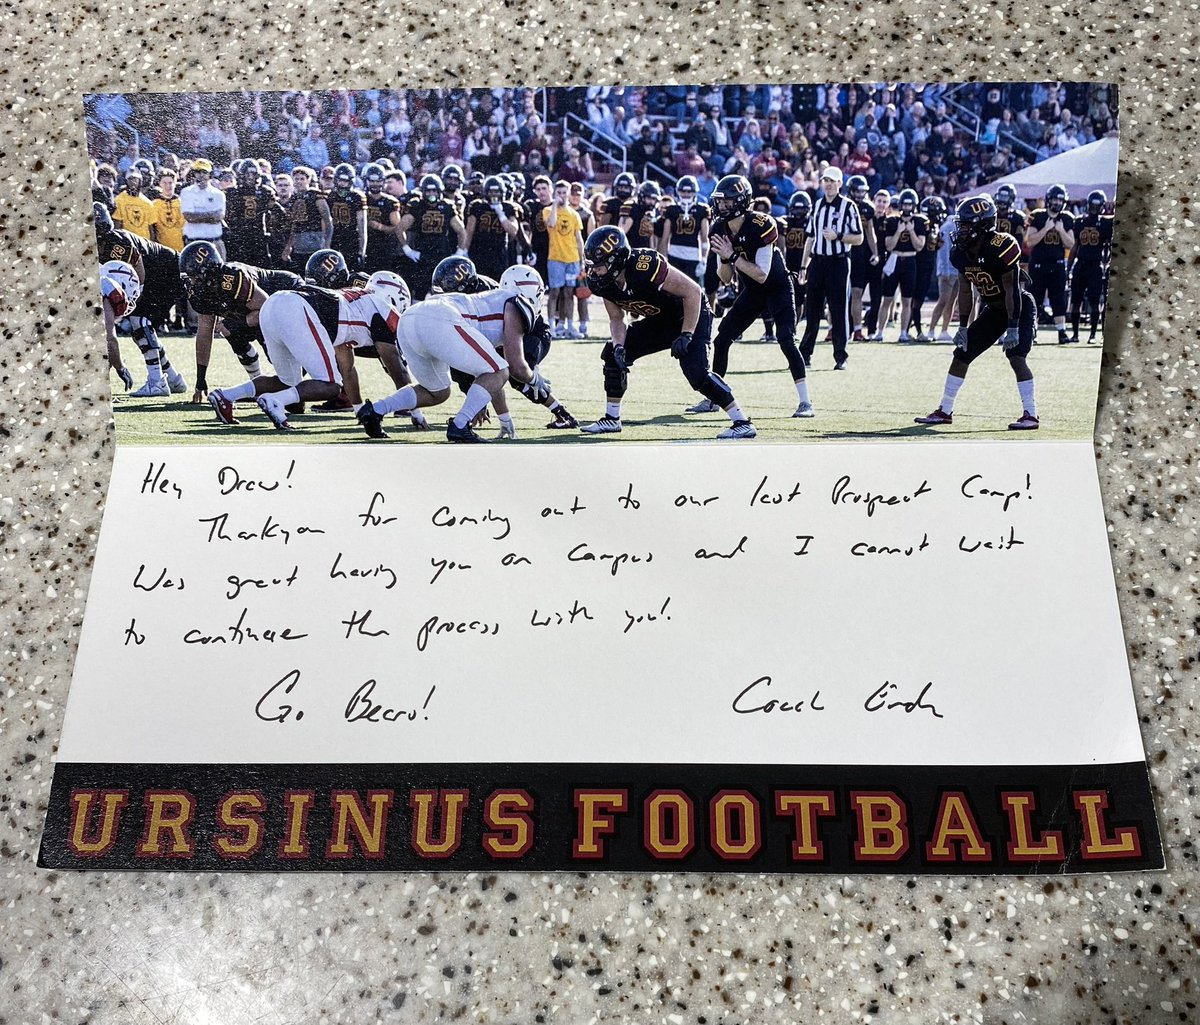 UC
UC
UC
UC
UC
54
27
24
66
22
Hey Drew!
Thankyou for coming out to our last Prospect Camp!
Was great having you on campus and I cannot wait
to continue the process with you!
Go Bears!
Coach
URSINUS FOOTBALL